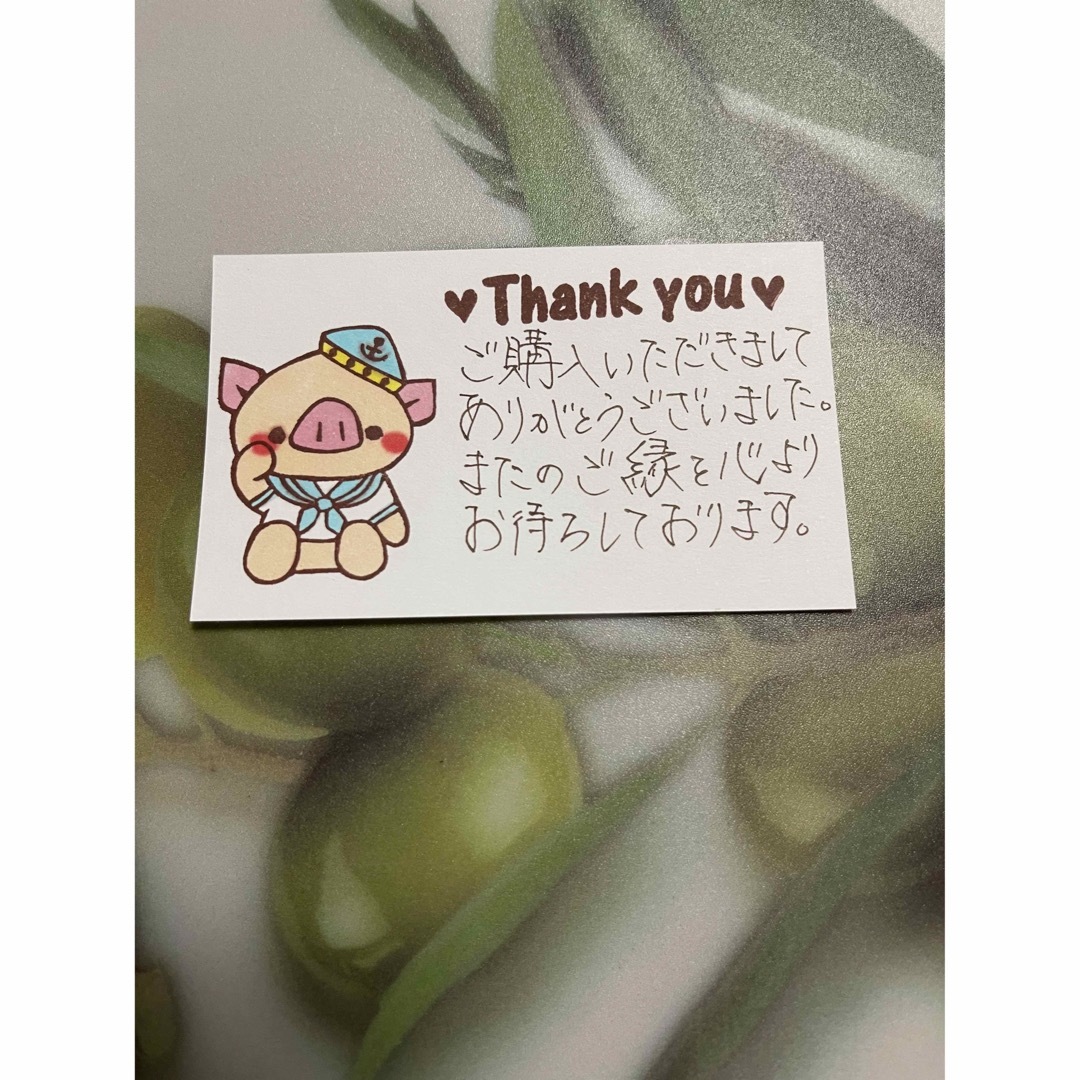 ♥Thank you♥
ご購入いただきまして
ありがとうございました。
またのご縁を心より
お待ちしております。